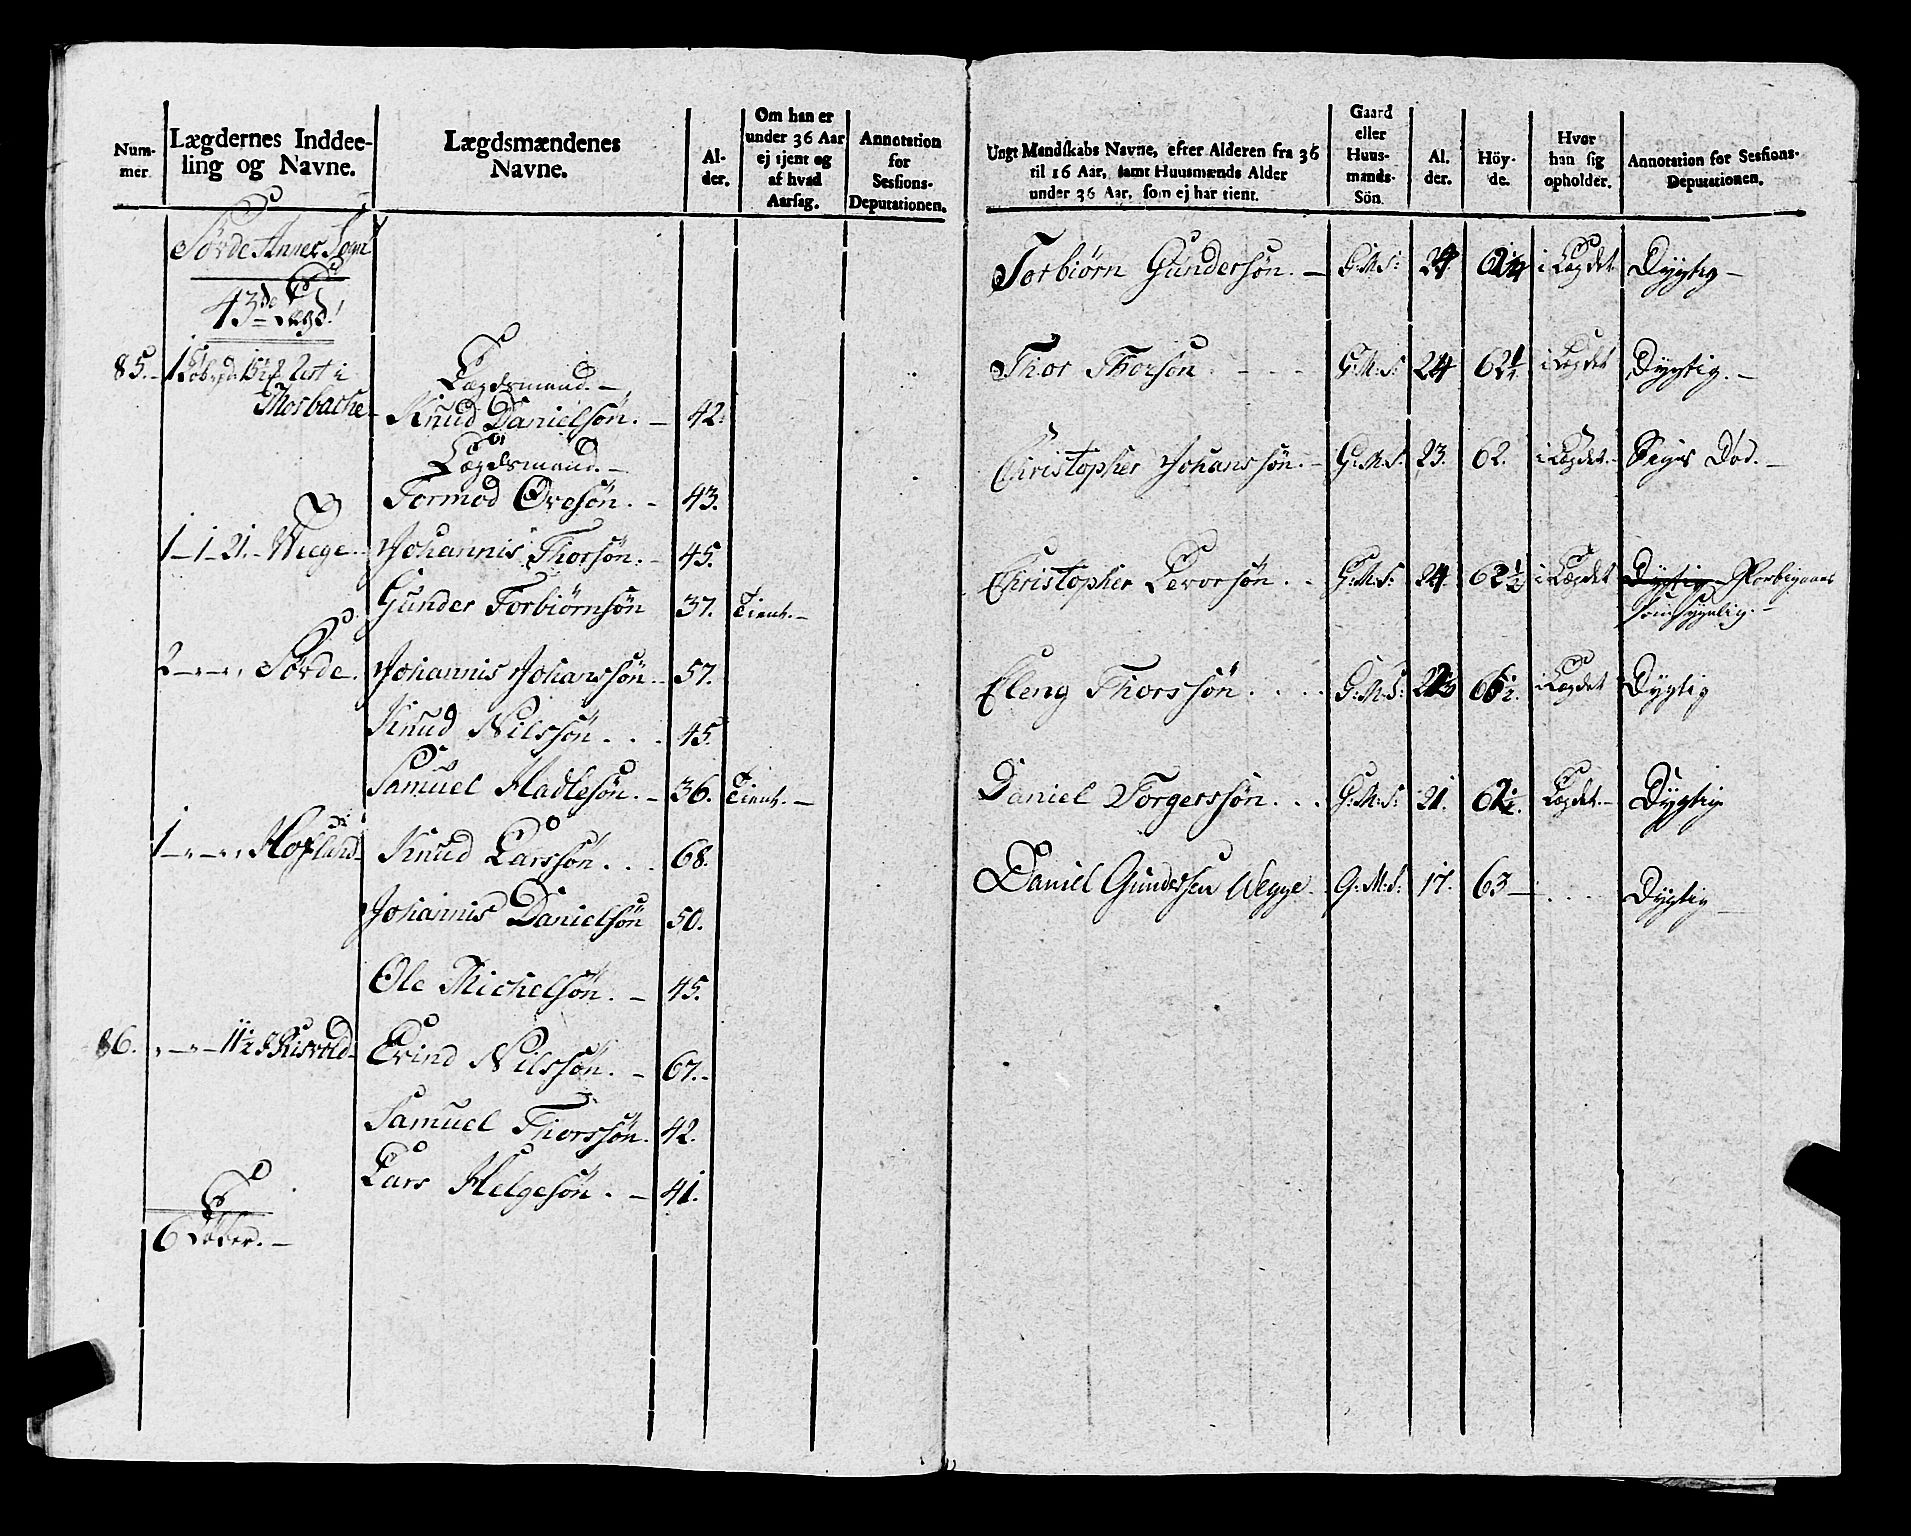 Num-
mer.
Lægdernes Inddee-
ling og Navne.
Lægdsmændenes
Navne.
Al-
der.
Om han er
under 36 Aar
ej tjent og
af hvad
Aarsag.
Annotation
for
Sessions-
Deputationen.
Sørde Annex Sogn
43de Lægd!
85.
Thorbache
Lægdsmand.
Knud Danielsøn. 42.
Lægdsmand.
Tormod Øvesøn. 43.
1-1-21. Weege. Johannis Thorsøn. 45.
Gunder Torbiørnsøn 37. Tient.
2 Sørde. Johannis Johanssøn 57.
Knud Nilssøn 45.
Samuel Madlesøn. 36. Tient.
1 Hofland Knud Larssøn. 68.
Johannis Danielsøn 50.
Ole Michelsøn. 45.
86. 11½ Risvold Evind Nilssøn. 67.
Samuel Thorssøn. 42.
Lars Helgesøn. 41.
6 Løber.
Ungt Mandskabs Navne, efter Alderen fra 36
til 16 Aar, samt Huusmænds Alder
under 36 Aar, som ej har tient.
Gaard
eller
Huus-
mands-
Sön.
Al.
der.
Höy-
de.
Hvor
han sig
opholder.
Annotation for Sessions-
Deputationen.
Torbiørn Gundersøn. G:M:S: 24 i Lægdet Dygtig
Thor Thorsøn G:M:S: 24 i Lægdet Dygtig.
Christopher Johanssøn. G:M:S. 23. 62. i Lægdet. Siges Død.
Christopher Levorsøn G:M:S: 24 62½ i Lægdet Dygtig Forbigaaes
Eleng Thorssøn G:M:S: i Lægdet Dygtig
Daniel Torgerssøn G:M:S: 21. 62½. Lægdet. Dygtig
Daniel Gundersen Wegge. G:M:S: 17. 63 Dygtig